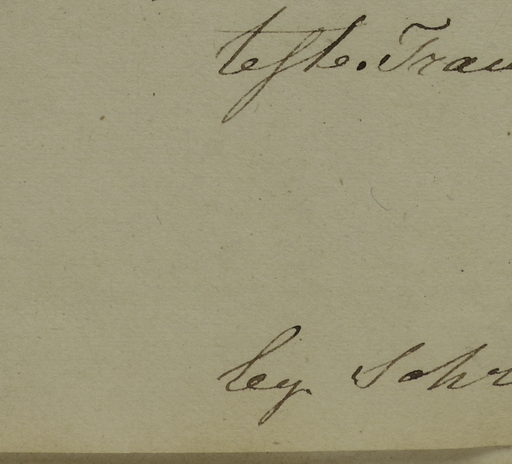 teste. Trau
leg. Schr